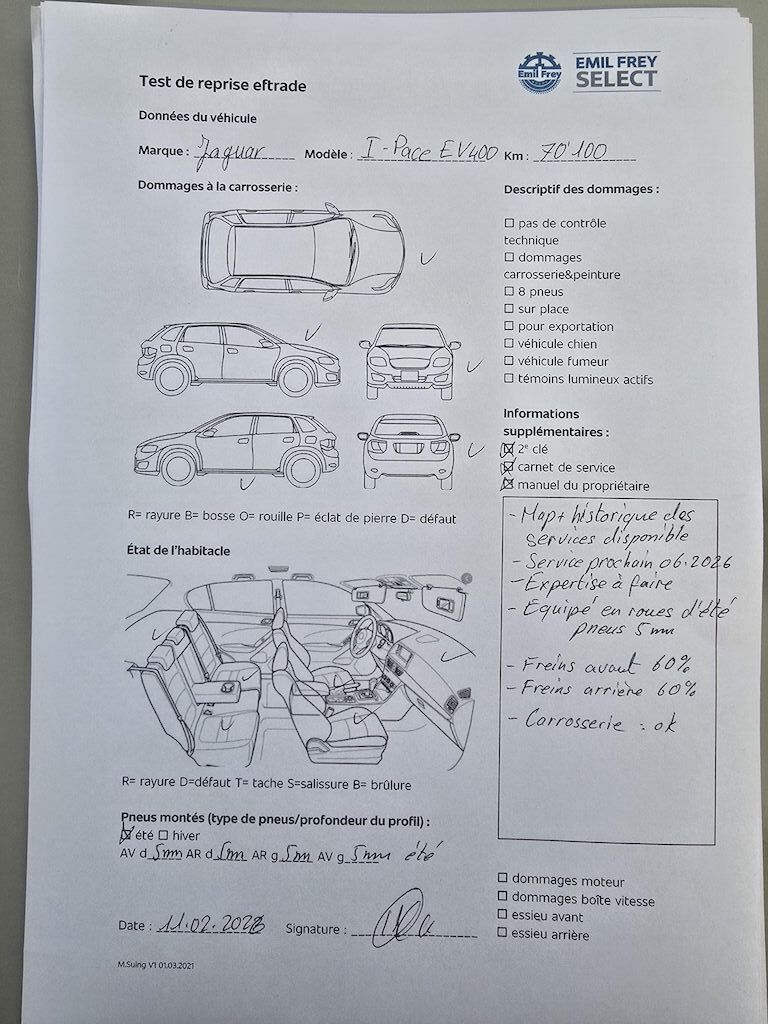 EMIL FREY
SELECT
Emil Frey
Test de reprise eftrade
Données du véhicule
Marque : Jaguar Modèle : I-Pace EV400 Km : 70'100
Dommages à la carrosserie :
R= rayure B= bosse O= rouille P= éclat de pierre D= défaut
État de l'habitacle
R= rayure D=défaut T= tache S=salissure B= brûlure
Pneus montés (type de pneus/profondeur du profil) :
☒ été ☐ hiver
AV d 5mm AR d 5mm AR g 5mm AV g 5mm été
Date : 11.02.2026 Signature :
M.Suing V1 01.03.2021
Descriptif des dommages :
☐ pas de contrôle
technique
☐ dommages
carrosserie&peinture
☐ 8 pneus
☐ sur place
☐ pour exportation
☐ véhicule chien
☐ véhicule fumeur
☐ témoins lumineux actifs
Informations
supplémentaires :
☒ 2e clé
☒ carnet de service
☒ manuel du propriétaire
- Map+ historique des
services disponible
- Service prochain 06.2026
- Expertise à faire
- Equipé en roues d'été
pneus 5mm
- Freins avant 60%
- Freins arrière 60%
- Carrosserie : ok
☐ dommages moteur
☐ dommages boîte vitesse
☐ essieu avant
☐ essieu arrière